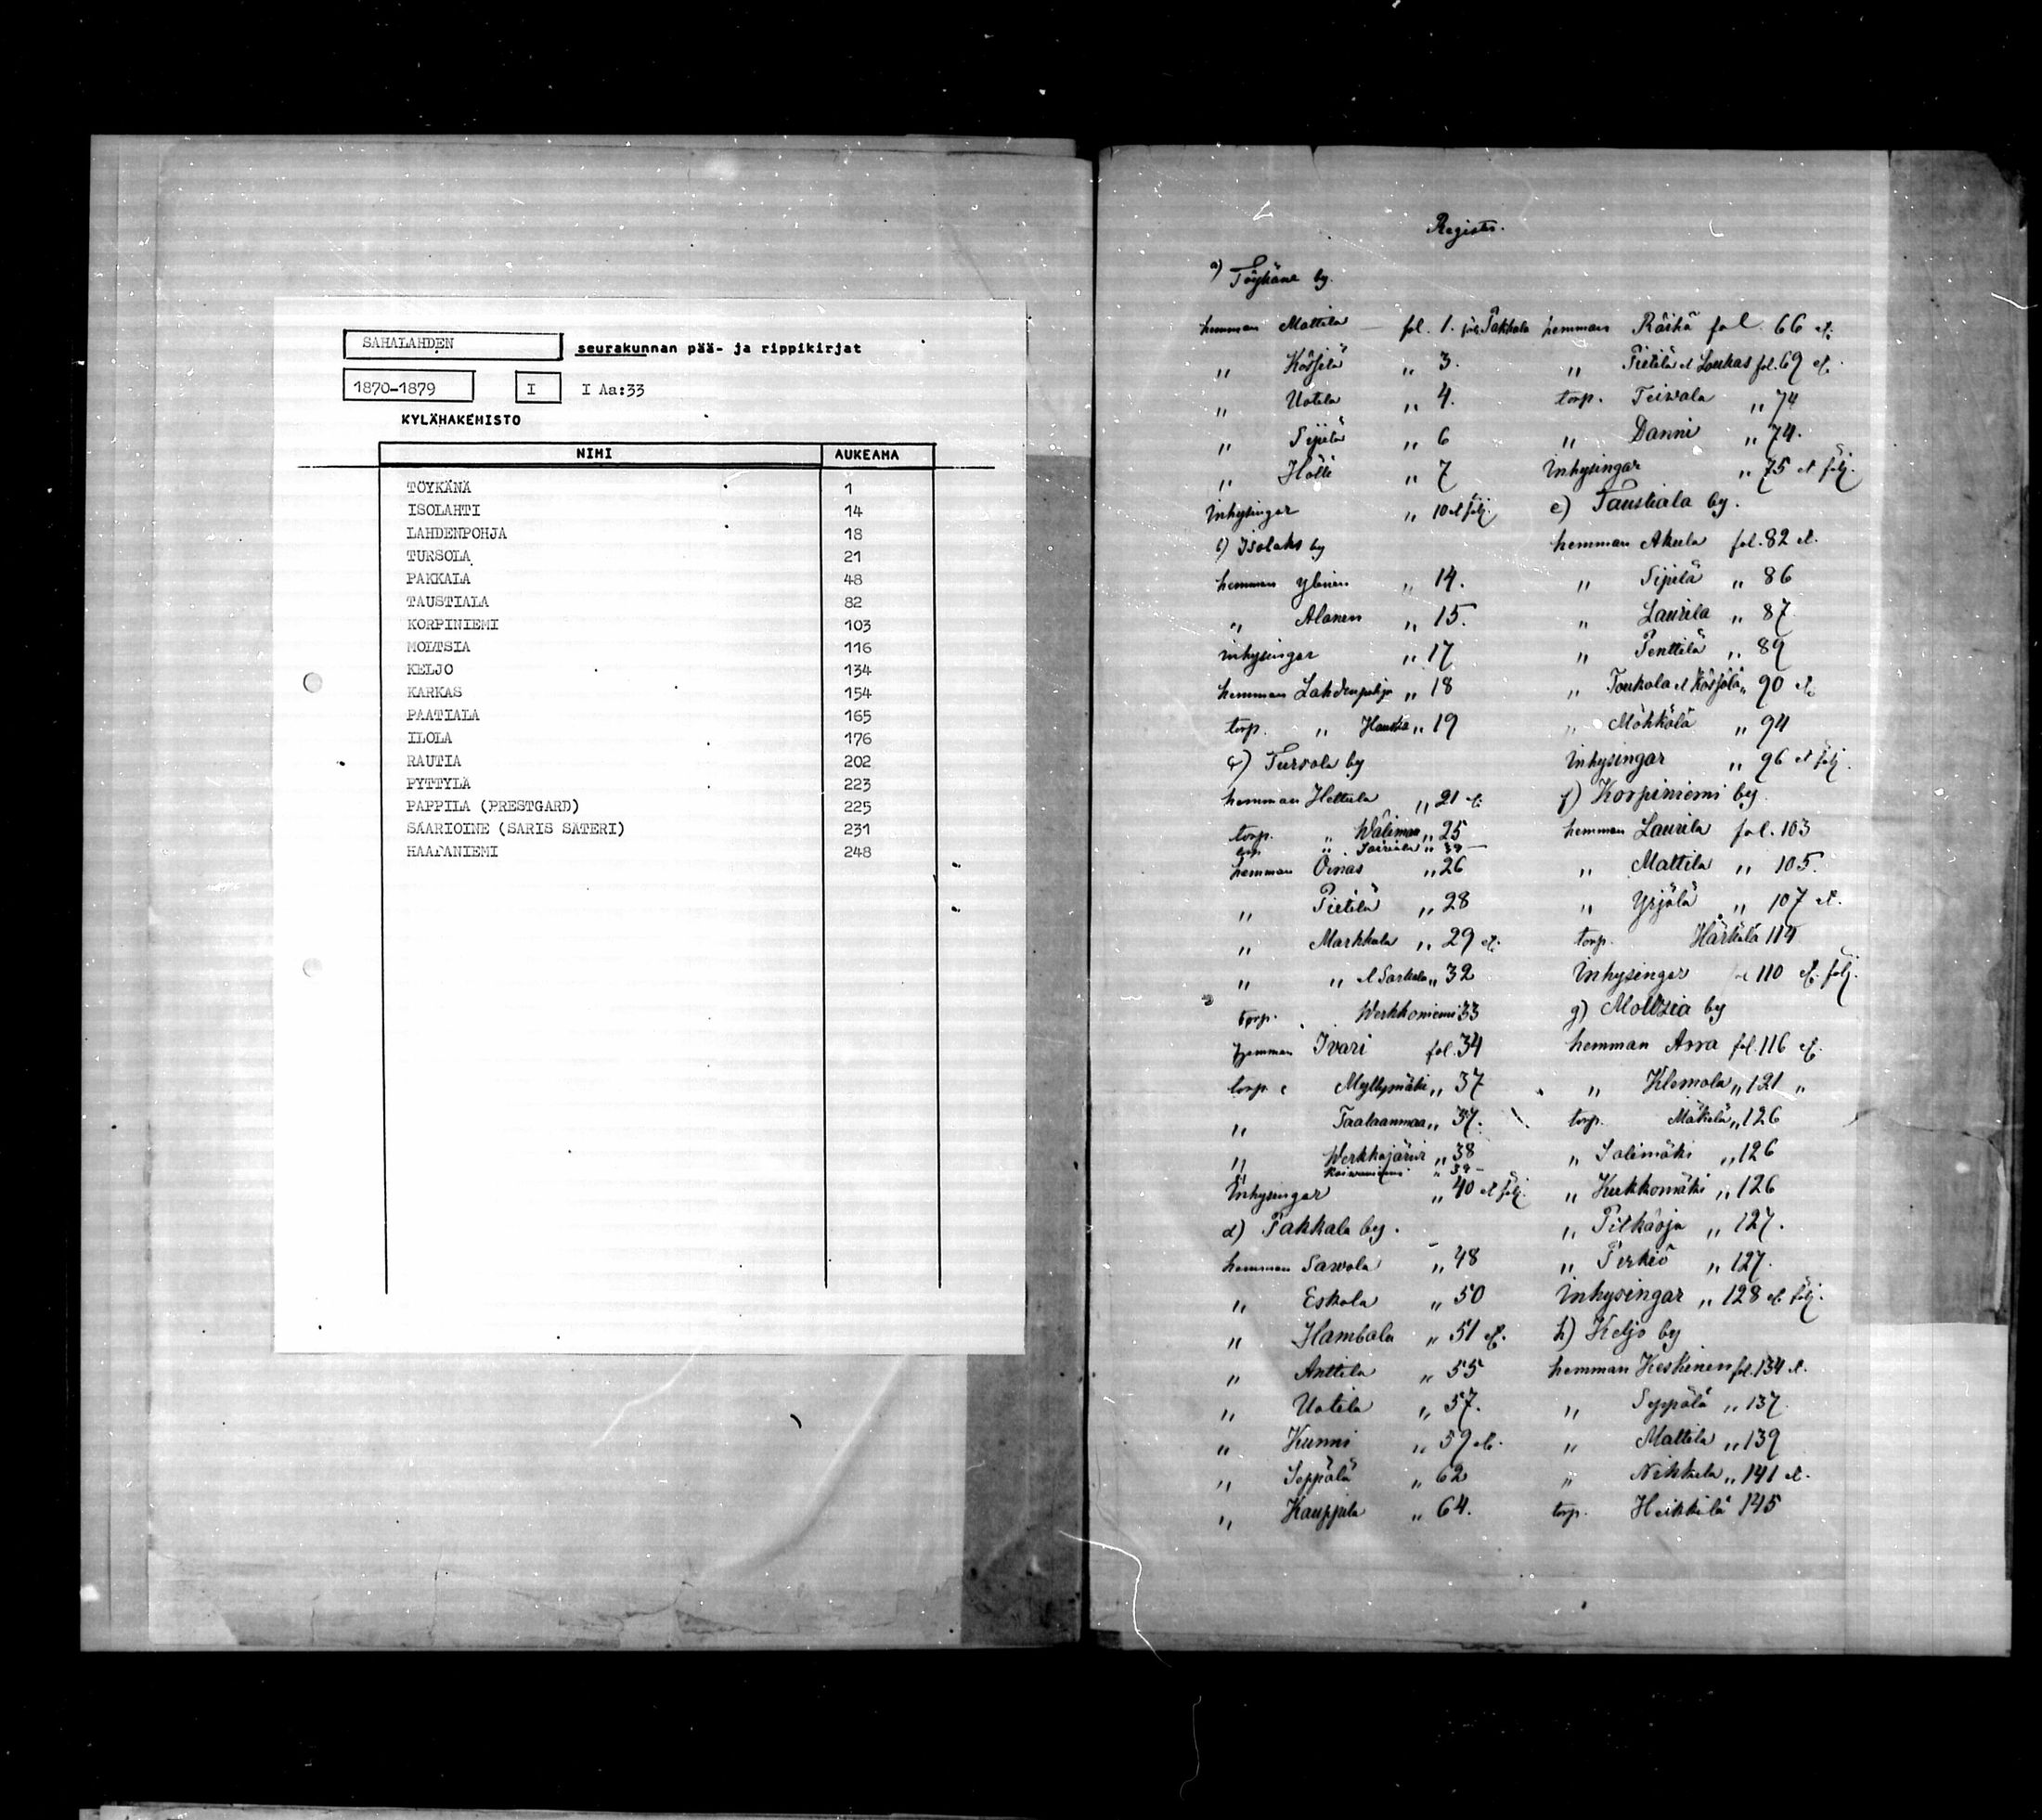 SAHALAHDEN seurakunnan pää- ja rippikirjat
1870-1879 I I Aa:33
KYLÄHAKEMISTO
NIMI AUKEAMA
TÖYKÄNÄ 1
ISOLAHTI 14
LAHDENPOHJA 18
TURSOLA 21
PAKKALA 48
TAUSTIALA 82
KORPINIEMI 103
MOLTSIA 116
KELJO 134
KARKAS 154
PAATIALA 165
ILOLA 176
RAUTIA 202
PYTTYLÄ 223
PAPPILA (PRESTGARD) 225
SAARIOINE (SARIS SÄTERI) 231
HAAPANIEMI 248
Register.
a) Töykäne by.
hemman Mattila — fol. 1.
„ Kössilä „ 3.
„ Uotila „ 4.
„ Sipilä „ 6
„ Hölli „ 7
inhysingar „ 10 et följ.
b) Isolaks by
hemman Ylinen „ 14.
„ Alanen „ 15.
inhysingar „ 17
hemman Lahdenpohja „ 18
torp. „ „ 19
c) Tursola by
hemman Hettula „ 21 et.
torp. „ Wälimaa „ 25
hemman Oinas „ 26
„ Pietilä „ 28
„ Markkula „ 29 et.
„ „ et Sarkola „ 32
torp. Werkkoniemi 33
hemman Ivari fol. 34
torp. Myllymäki „ 37
„ Taalaanmaa „ 37.
„ Werkkojärvi „ 38
Koivuniemi „ 39 —
Inhysingar „ 40 et följ.
d) Pakkala by.
hemman Sawola „ 48
„ Eskola „ 50
„ Hambola „ 51 et.
„ Anttila „ 55
„ Uotila „ 57.
„ Kunni „ 59 et.
„ Seppälä „ 62
„ Kauppila „ 64.
Pakkala hemman Räihä fol. 66 et.
„ Pietilä et Loukas fol. 69 et.
torp. Teiwala „ 74
„ Danni „ 74.
Inhysingar „ 75 et följ.
e) Taustiala by.
hemman Akula fol. 82 et.
„ Sipilä „ 86
„ Laurila „ 87
„ Penttilä „ 89
„ Toukola et Kössölä „ 90 et.
„ Möhkölä „ 94
Inhysingar „ 96 et följ.
f) Korpiniemi by.
hemman Laurila fol. 103
„ Mattila „ 105.
„ Yrjölä „ 107 et.
torp. Härkälä 114
Inhysingar fol 110 et. följ.
g) Moltzia by
hemman Arra fol. 116 et.
„ Klemola „ 121 „
torp. Mäkelä „ 126
„ Salimäki „ 126
„ Kukkomäki „ 126
„ Pitkäoja „ 127.
„ Perkiö „ 127.
Inhysingar „ 128 et. följ.
h) Keljo by
hemman Keskinen fol. 134 et.
„ Seppälä „ 137
„ Mattila „ 139
„ Nikkilä „ 141 et.
torp. Heikkilä 145